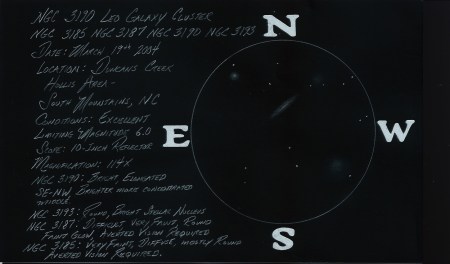 NGC 3190 Leo Galaxy Cluster
NGC 3185 NGC 3187 NGC 3190 NGC 3193
Date: March 19th 2004
Location: Duncans Creek
Hollis Area-
South Mountains, NC
Conditions: Excellent
Limiting Magnitude 6.0
Scope: 10-Inch Reflector
Magnification: 114x
NGC 3190: Bright, Elongated
SE-NW, Brighter more concentrated
NGC 3193: Round, Bright Stellar Nucleus
NGC 3187: Difficult, Very Faint, Round
Faint Glow, Averted Vision Required
NGC 3185: Very Faint, Diffuse, mostly Round
Averted Vision Required.
N
E
W
S